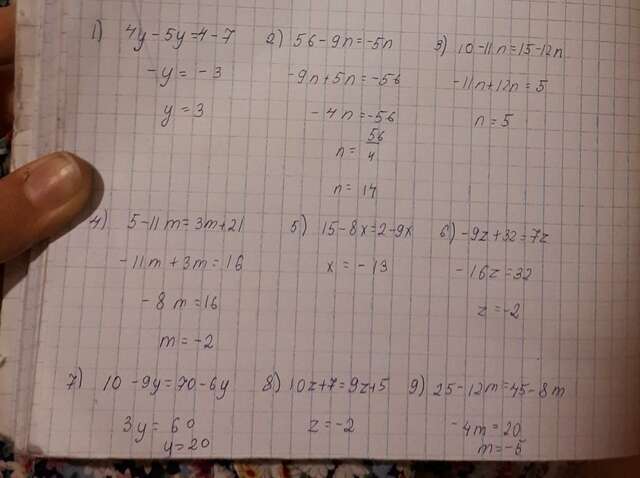 1) 4y - 5y = 4 - 7
- y = - 3
y = 3
2) 56 - 9n = -5n
- 9n + 5n = -56
- 4n = -56
n = 56/4
n = 14
3) 10 - 11n = 15 - 12n
- 11n + 12n = 5
n = 5
4) 5 - 11m = 3m + 21
- 11m + 3m = 16
- 8m = 16
m = -2
5) 15 - 8x = 2 - 9x
x = - 13
6) - 9z + 32 = 7z
- 16z = 32
z = -2
7) 10 - 9y = 70 - 6y
3y = 60
y = 20
8) 10z + 7 = 9z + 5
z = -2
9) 25 - 12m = 45 - 8m
- 4m = 20
m = -5